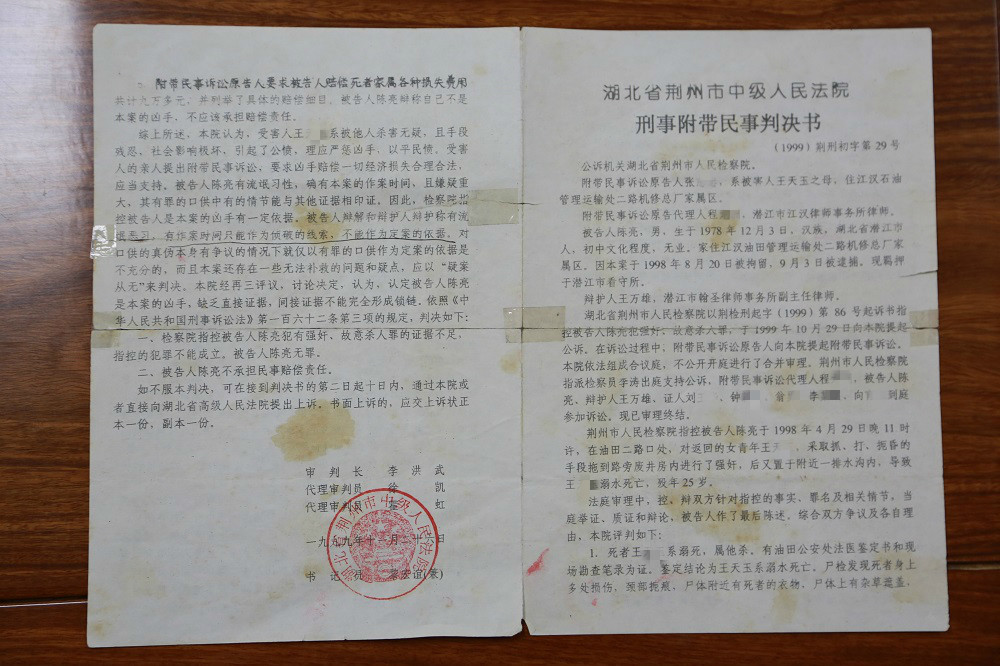 附带民事诉讼原告人要求被告人赔偿死者家属各种损失费用
共计九万多元，并列举了具体的赔偿细目。被告人陈亮辩称自己不是
本案的凶手，不应该承担赔偿责任。
综上所述，本院认为，受害人王 系被他人杀害无疑，且手段
残忍、社会影响极坏，引起了公愤，理应严惩凶手，以平民愤。受害
人的亲人提出附带民事诉讼，要求凶手赔偿一切经济损失合理合法，
应当支持。被告人陈亮有流氓习性，确有本案的作案时间，且嫌疑重
大，其有罪的口供中有的情节能与其他证据相印证。因此，检察院指
控被告人是本案的凶手有一定依据。被告人辩解和辩护人辩护称有流
氓恶习，有作案时间只能作为侦破的线索，不能作为定案的依据。对
口供的真伪本身有争议的情况下就仅以有罪的口供作为定案的依据是
不充分的，而且本案还存在一些无法补救的问题和疑点，应以“疑案
从无”来判决。本院经再三评议，讨论决定，认为，认定被告人陈亮
是本案的凶手，缺乏直接证据，间接证据不能完全形成锁链。依照《中
华人民共和国刑事诉讼法》第一百六十二条第三项的规定，判决如下：
一、检察院指控被告人陈亮犯有强奸、故意杀人罪的证据不足，
指控的犯罪不能成立。被告人陈亮无罪。
二、被告人陈亮不承担民事赔偿责任。
如不服本判决，可在接到判决书的第二日起十日内，通过本院或
者直接向湖北省高级人民法院提出上诉。书面上诉的，应交上诉状正
本一份，副本一份。
审判长 李洪武
代理审判员 徐凯
代理审判员 虹
一九九九年十 月二十 日
书记员 谊(兼)
湖北省荆州市中级人民法院
湖北省荆州市中级人民法院
刑事附带民事判决书
（1999）荆刑初字第29号
公诉机关湖北省荆州市人民检察院。
附带民事诉讼原告人张 ，系被害人王天玉之母，住江汉石油
管理运输处二路机修总厂家属区。
附带民事诉讼原告代理人程 ，潜江市江汉律师事务所律师。
被告人陈亮，男，生于1978年12月3日，汉族，湖北省潜江市
人，初中文化程度，无业。家住江汉油田管理运输处二路机修总厂家
属区。因本案于1998年8月20日被拘留，9月3日被逮捕。现羁押
于潜江市看守所。
辩护人王万雄，潜江市翰圣律师事务所副主任律师。
湖北省荆州市人民检察院以荆检刑起字（1999）第86号起诉书指
控被告人陈亮犯强奸、故意杀人罪，于1999年10月29日向本院提起
公诉。在诉讼过程中，附带民事诉讼原告人向本院提起附带民事诉讼。
本院依法组成合议庭，不公开开庭进行了合并审理。荆州市人民检察院
指派检察员李涛出庭支持公诉，附带民事诉讼代理人程 、被告人陈
亮、辩护人王万雄、证人刘 、钟 、翁 、李 、向 到庭
参加诉讼。现已审理终结。
荆州市人民检察院指控被告人陈亮于1998年4月29日晚11时
许，在油田二路口处，对返回的女青年王 ，采取抓、打、扼昏的
手段拖到路旁废井房内进行了强奸，后又置于附近一排水沟内，导致
王 溺水死亡，殁年25岁。
法庭审理中，控、辩双方针对指控的事实、罪名及相关情节，当
庭举证、质证和辩论，被告人作了最后陈述。综合双方争议及各自理
由，本院评判如下：
1. 死者王 系溺死，属他杀。有油田公安处法医鉴定书和现
场勘查笔录为证。鉴定结论为王天玉系溺水死亡。尸检发现死者身上
多处损伤、颈部扼痕，尸体附近有死者的衣物，尸体上有杂草遮盖，